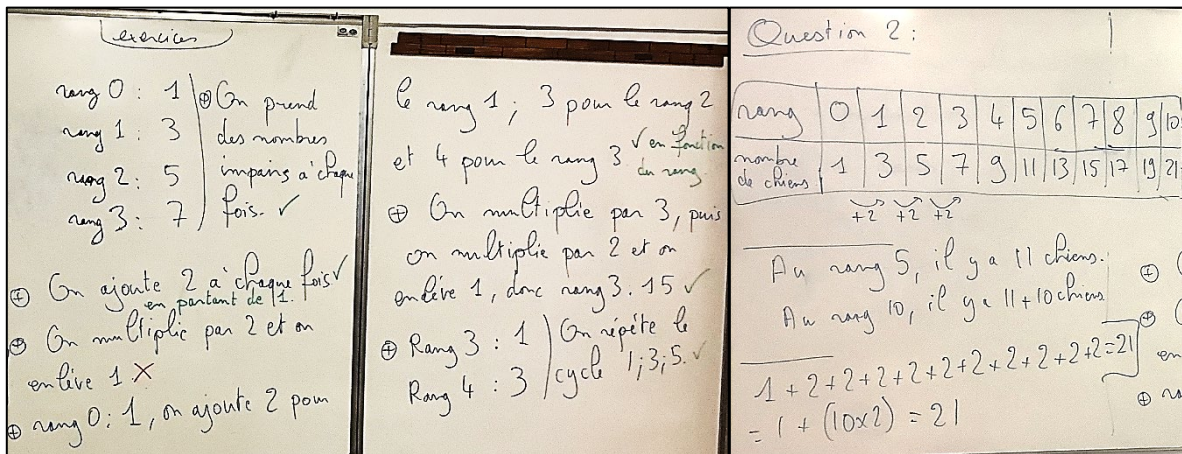 exercices
rang 0 : 1
rang 1 : 3
rang 2 : 5
rang 3 : 7
⊕ On prend
des nombres
impairs à chaque
fois. ✓
⊕ On ajoute 2 à chaque fois ✓
en partant de 1.
⊕ On multiplie par 2 et on
enlève 1 ✗
⊕ rang 0 : 1, on ajoute 2 pour
le rang 1 ; 3 pour le rang 2
et 4 pour le rang 3 ✓ en fonction
du rang
⊕ On multiplie par 3, puis
on multiplie par 2 et on
enlève 1, donc rang 3. 15 ✓
⊕ Rang 3 : 1
Rang 4 : 3
On répète le
cycle 1 ; 3 ; 5. ✓
Question 2 :
rang 0 1 2 3 4 5 6 7 8 9 10
nombre de chiens 1 3 5 7 9 11 13 15 17 19 21
+2 +2 +2
Au rang 5, il y a 11 chiens.
Au rang 10, il y a 11 + 10 chiens
1 + 2 + 2 + 2 + 2 + 2 + 2 + 2 + 2 + 2 + 2 = 21
= 1 + (10 x 2) = 21